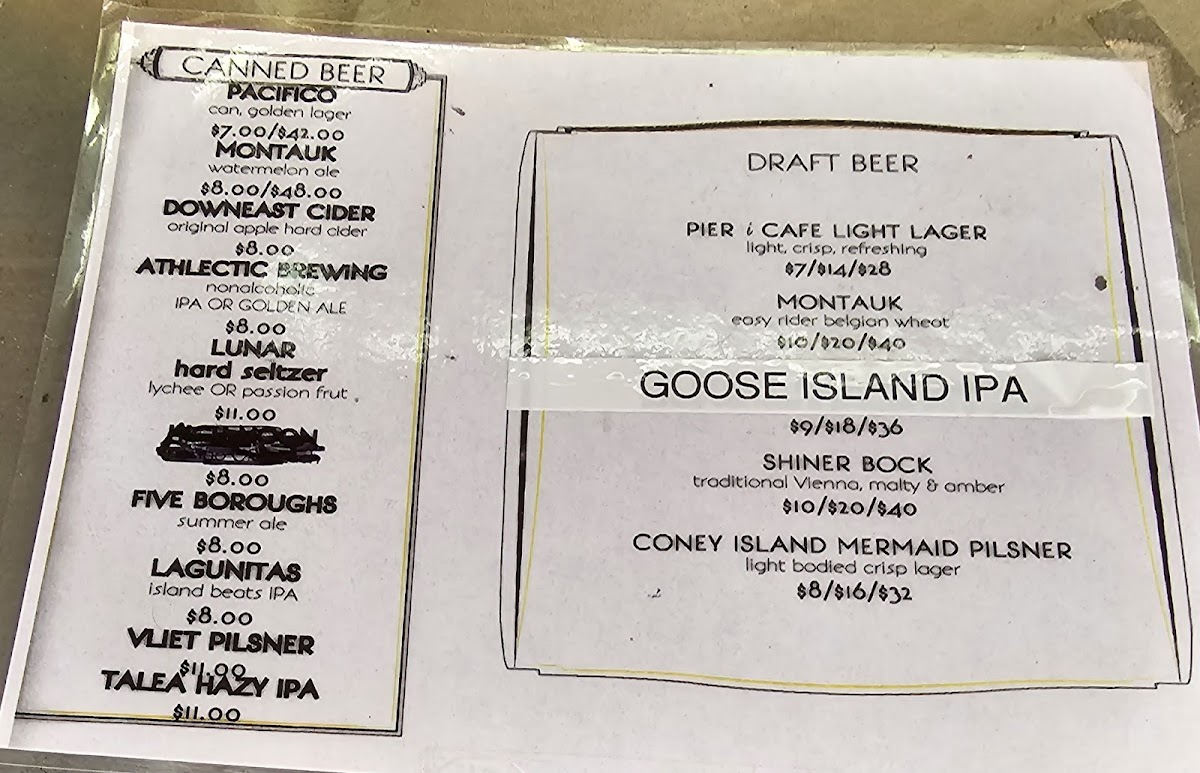 CANNED BEER
PACIFICO
can, golden lager
$7.00/$42.00
MONTAUK
watermelon ale
$8.00/$48.00
DOWNEAST CIDER
original apple hard cider
$8.00
ATHLECTIC BREWING
nonalcoholic
IPA OR GOLDEN ALE
$8.00
LUNAR
hard seltzer
lychee OR passion frut
$11.00
$8.00
FIVE BOROUGHS
summer ale
$8.00
LAGUNITAS
island beats IPA
$8.00
VLIET PILSNER
$11.00
TALEA HAZY IPA
$11.00
DRAFT BEER
PIER i CAFE LIGHT LAGER
light, crisp, refreshing
$7/$14/$28
MONTAUK
easy rider belgian wheat
$10/$20/$40
GOOSE ISLAND IPA
$9/$18/$36
SHINER BOCK
traditional Vienna, malty & amber
$10/$20/$40
CONEY ISLAND MERMAID PILSNER
light bodied crisp lager
$8/$16/$32